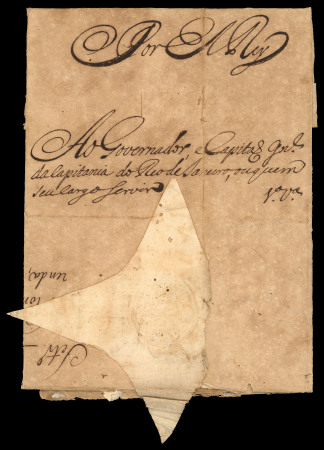 Por El Rey
Ao Governador, e Capitaõ Gnl.
da Capitania do Rio de Janeiro, ou quem
seu cargo servir 1ª. Vª
unda,